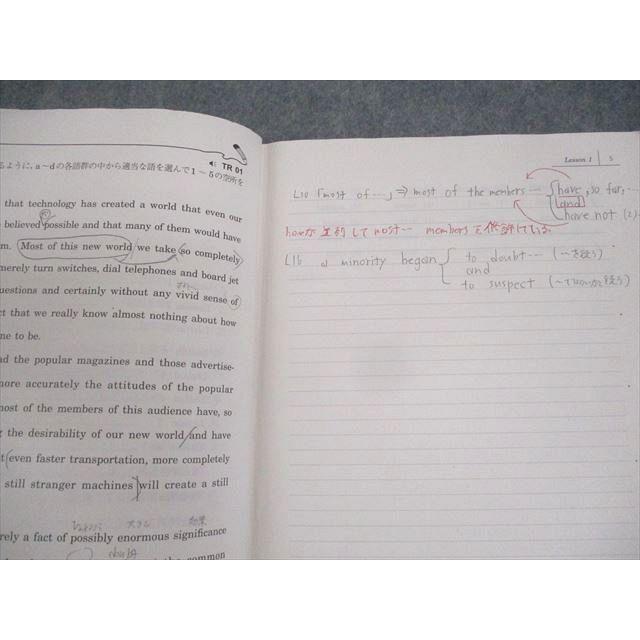 TR 01
るように，a～dの各語群の中から適当な語を選んで1～5の空所を
that technology has created a world that even our
believed possible and that many of them would have
m. Most of this new world we take so completely
merely turn switches, dial telephones and board jet
uestions and certainly without any vivid sense of
ct that we really know almost nothing about how
me to be.
d the popular magazines and those advertise-
nore accurately the attitudes of the popular
most of the members of this audience have, so
g the desirability of our new world and have
t even faster transportation, more completely
still stranger machines will create a still
rely a fact of possibly enormous significance
the common
Lesson 1 5
L10 「most of …」⇒ most of the members … have, so far, …
and
have not (2)
haveが並列して most… members を修飾している
L16 a minority began to doubt… (～を疑う)
and
to suspect